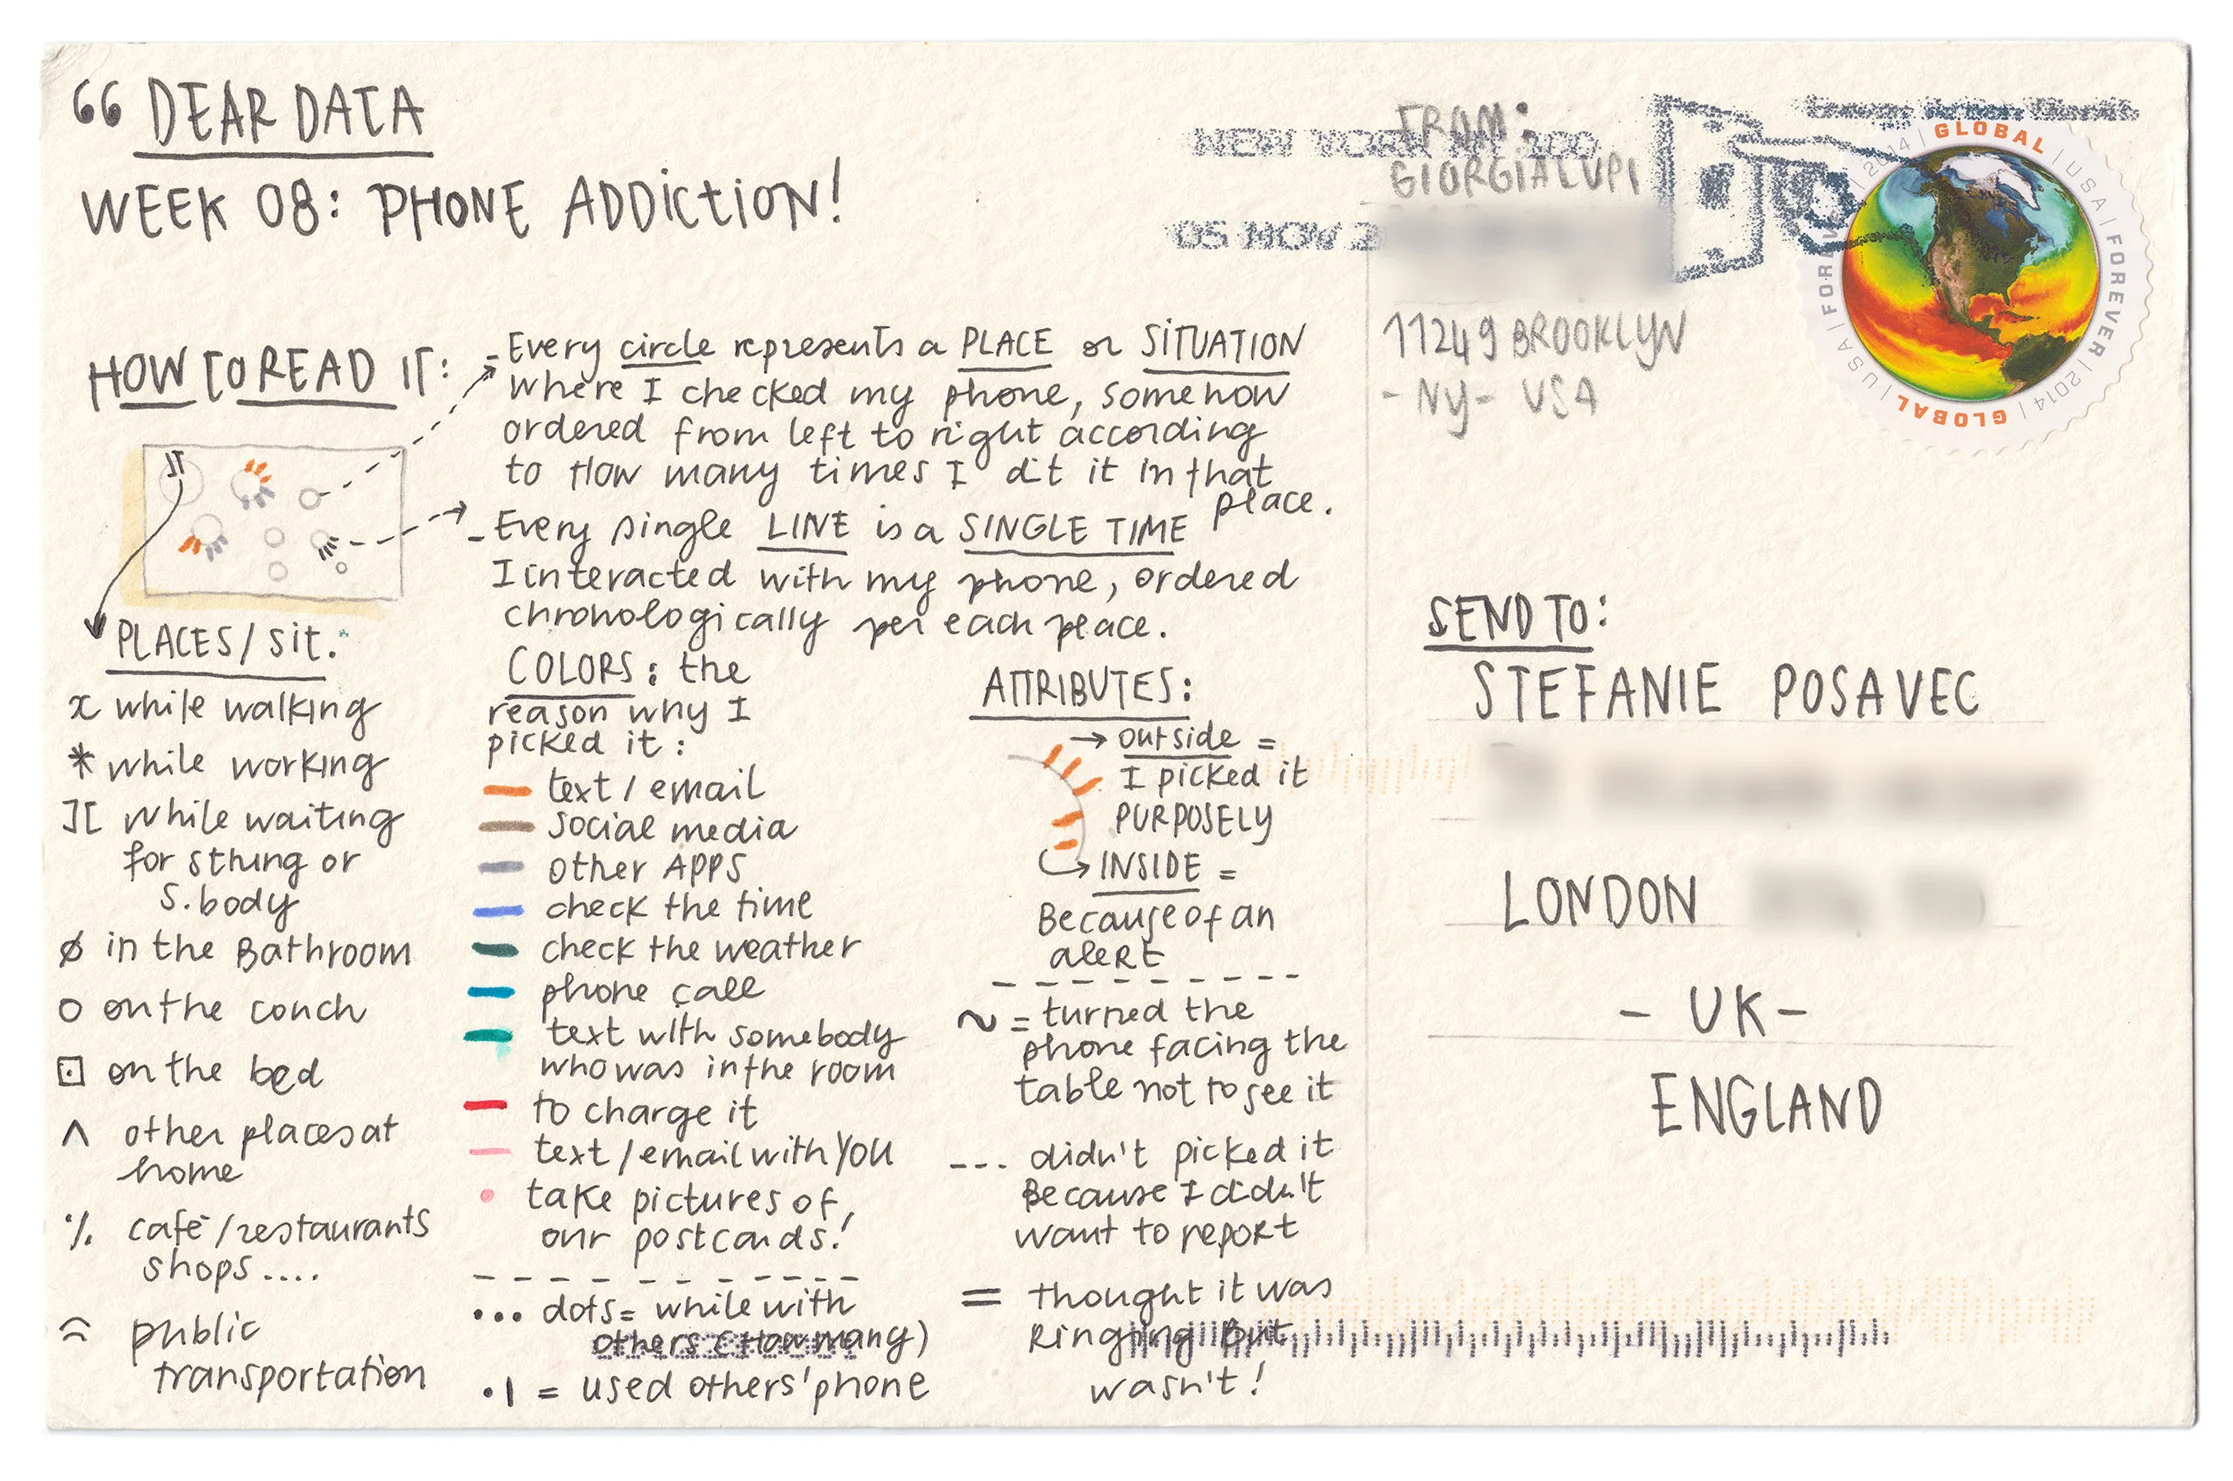 DEAR DATA
WEEK 08: PHONE ADDICTION!
HOW TO READ IT:
- Every circle represents a PLACE or SITUATION
where I checked my phone, somehow
ordered from left to right according
to How many times I dit it in that
place.
- Every single LINE is a SINGLE TIME
I interacted with my phone, ordered
chronologically per each peace.
PLACES/ Sit.
x while walking
* while working
][ while waiting
for sthing or
S.body
ø in the Bathroom
o on the couch
⊡ on the bed
^ other places at
home
·/. café/restaurants
shops....
public
transportation
COLORS: the
reason why I
picked it:
text / email
social media
other APPS
check the time
check the weather
phone call
text with somebody
who was in the room
to charge it
text / email with YOU
take pictures of
our postcards!
... dots = while with
others (How many)
.| = used others' phone
ATTRIBUTES:
→ outside =
I picked it
PURPOSELY
→ INSIDE =
Because of an
alert
~ = turned the
phone facing the
table not to see it
--- didn't picked it
Because I didn't
want to report
= thought it was
Ringing But
wasn't!
FROM:
GIORGIA LUPI
11249 BROOKLYN
- NY - USA
NEW YORK NY 100
05 NOV 2
GLOBAL | USA | FOREVER | 2014 | GLOBAL | USA | FOREVER | 2014
SEND TO:
STEFANIE POSAVEC
LONDON
- UK -
ENGLAND